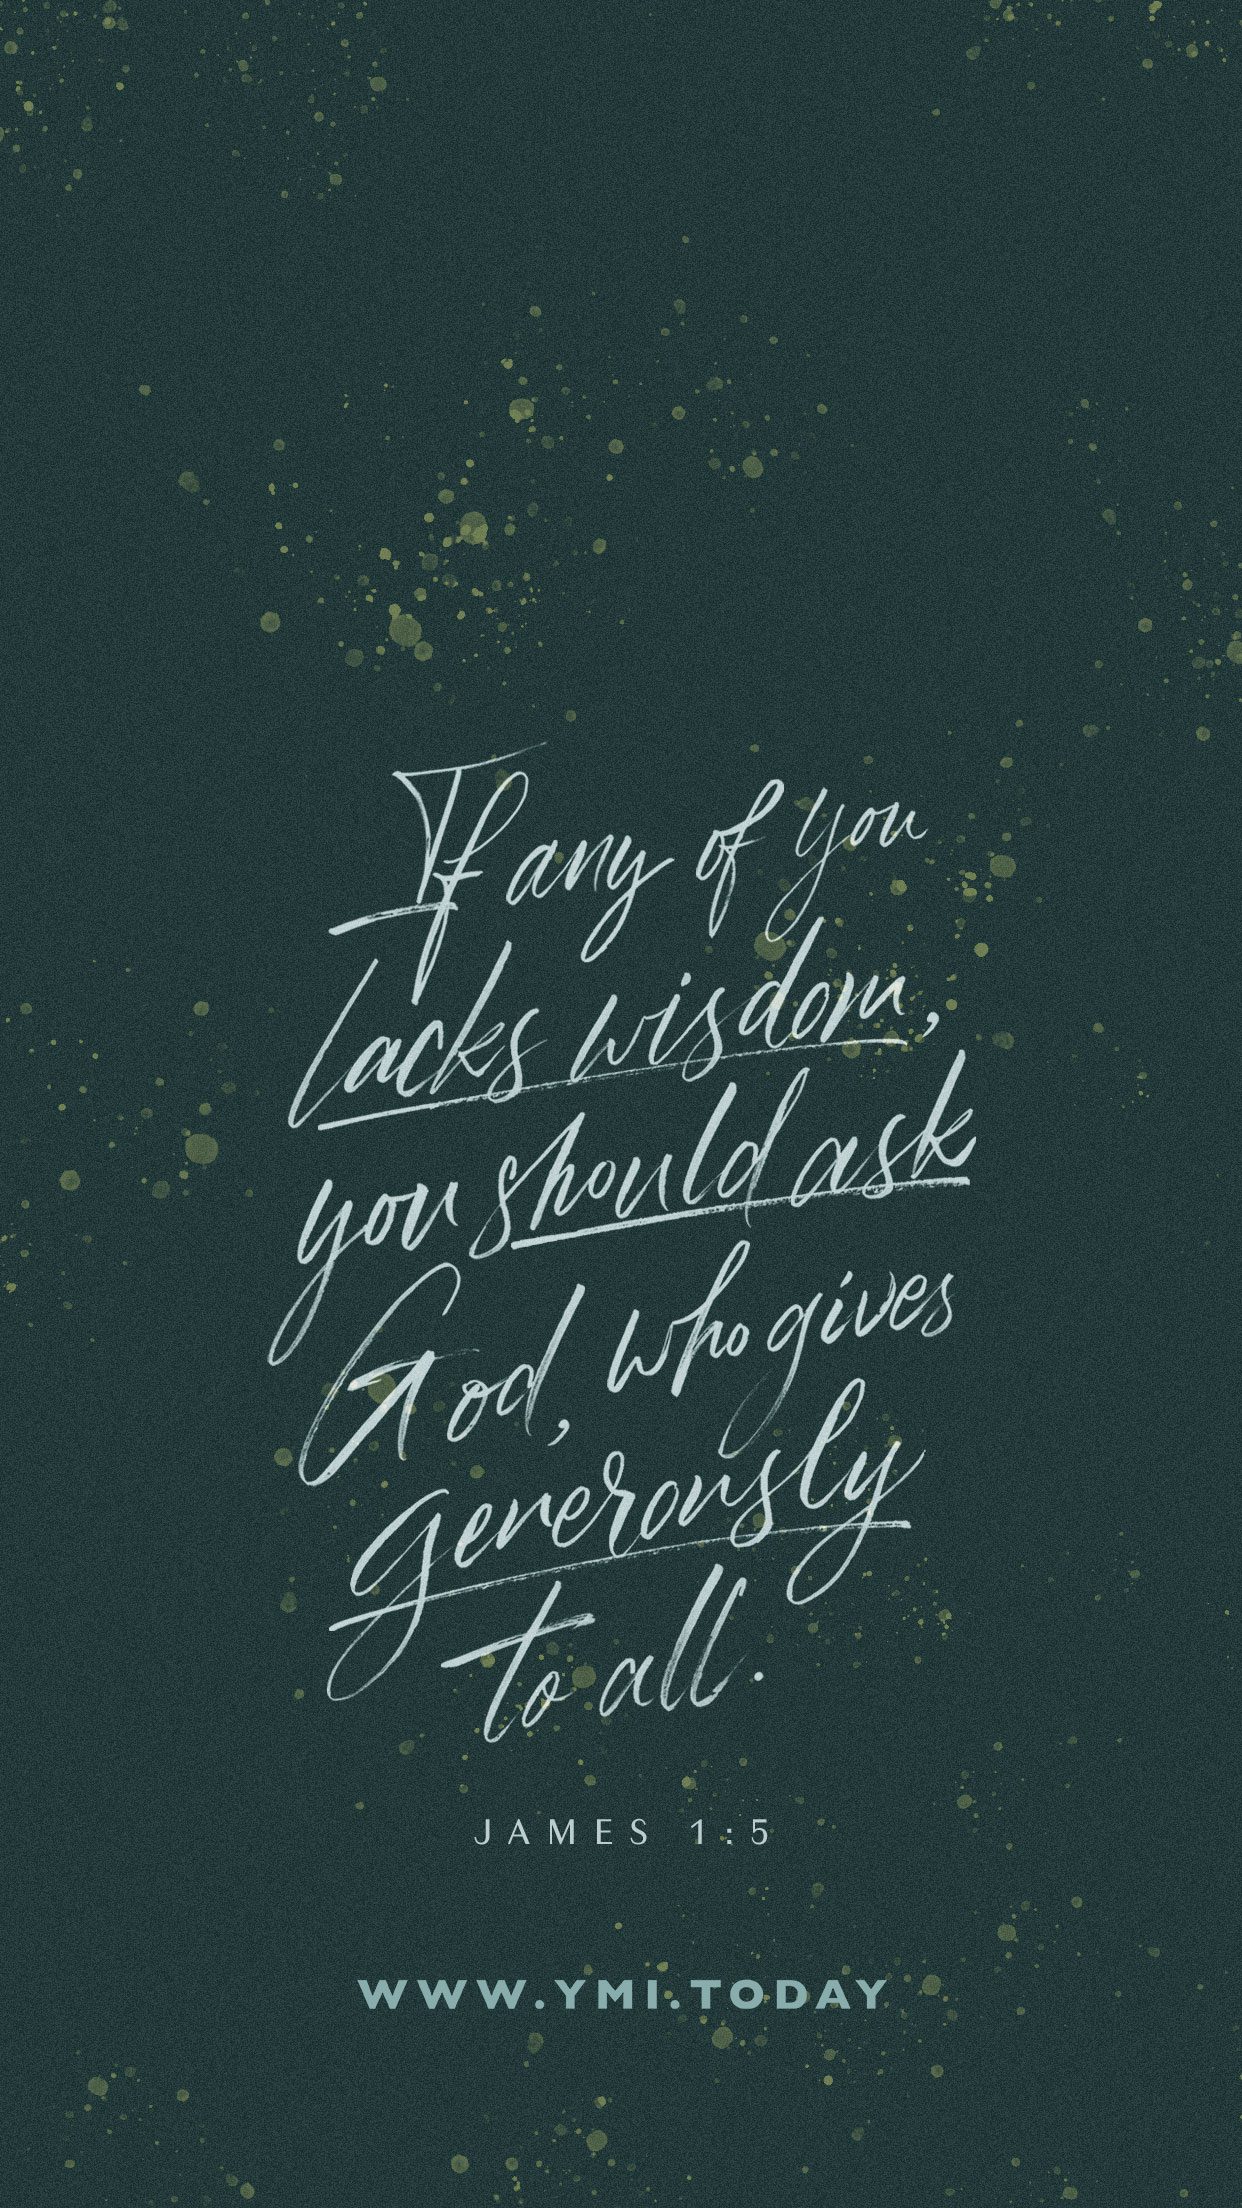 If any of you
lacks wisdom,
you should ask
God, who gives
generously
to all.
JAMES 1:5
WWW.YMI.TODAY